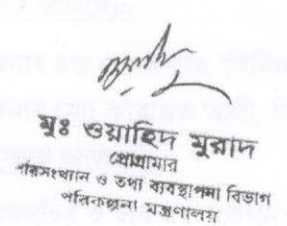 মুঃ ওয়াহিদ মুরাদ
প্রোগ্রামার
পরিসংখ্যান ও তথ্য ব্যবস্থাপনা বিভাগ
পরিকল্পনা মন্ত্রণালয়